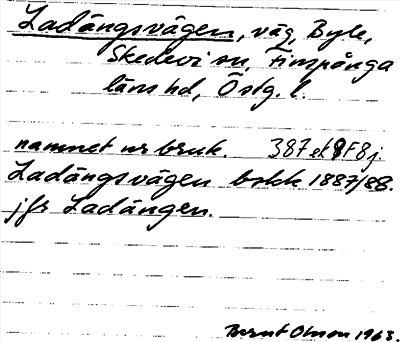 Ladängsvägen, väg, Byle,
Skedevi sn, Finspånga
läns hd, Östg. l.
namnet ur bruk. 387 ek 9F8j.
Ladängsvägen bokk 1887/88.
jfr Ladängen.
Bernt Olsson 1963.